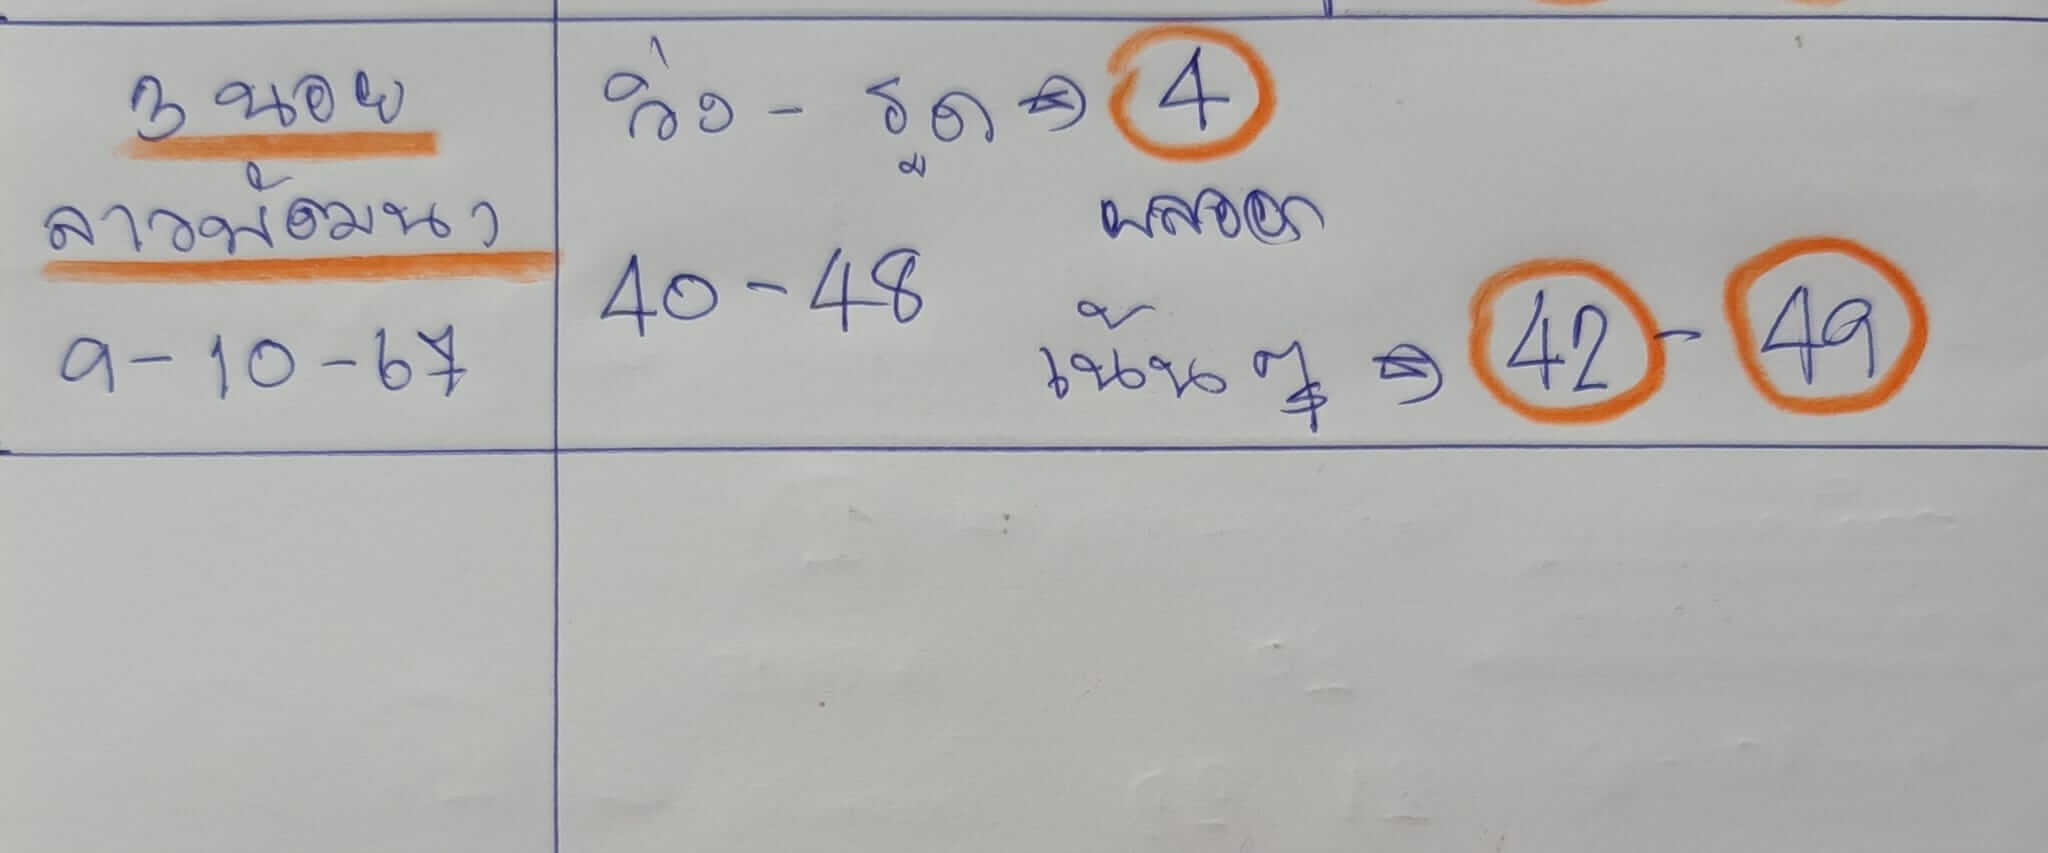 3 นอย
ลาวพัฒนา
9-10-67
วิ่ง - รูด → 4
40-48
ผลออก
เน้นๆ → 42 - 49